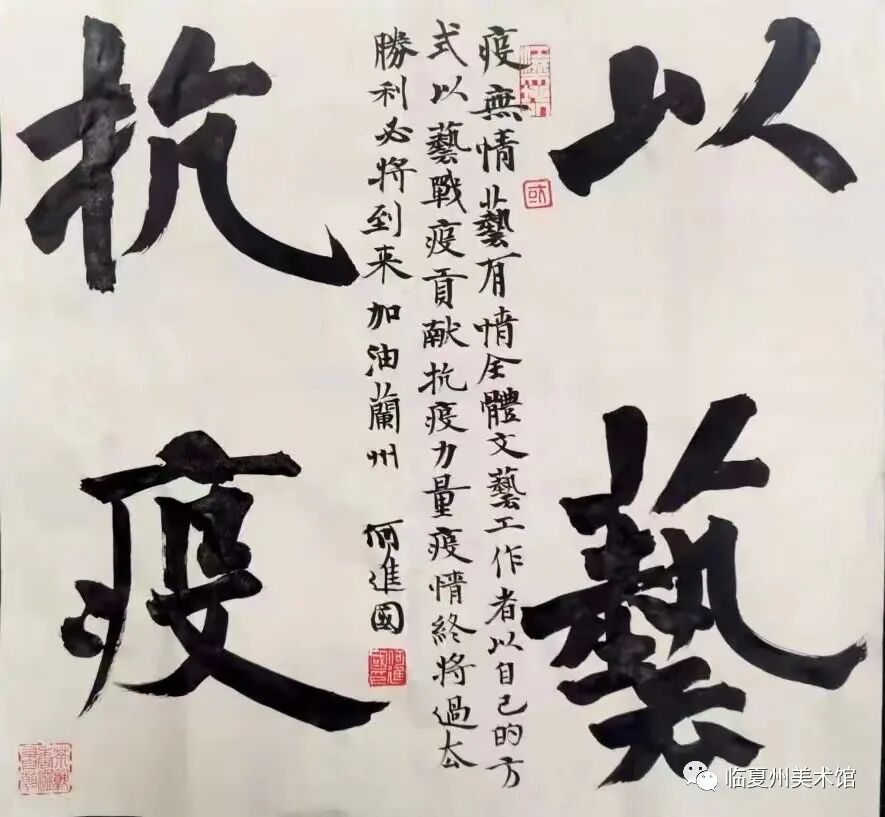 以藝
疫無情藝有情全體文藝工作者以自己的方
式以藝戰疫貢献抗疫力量疫情終将過去
勝利必将到来加油蘭州 何進國
抗疫
临夏州美术馆